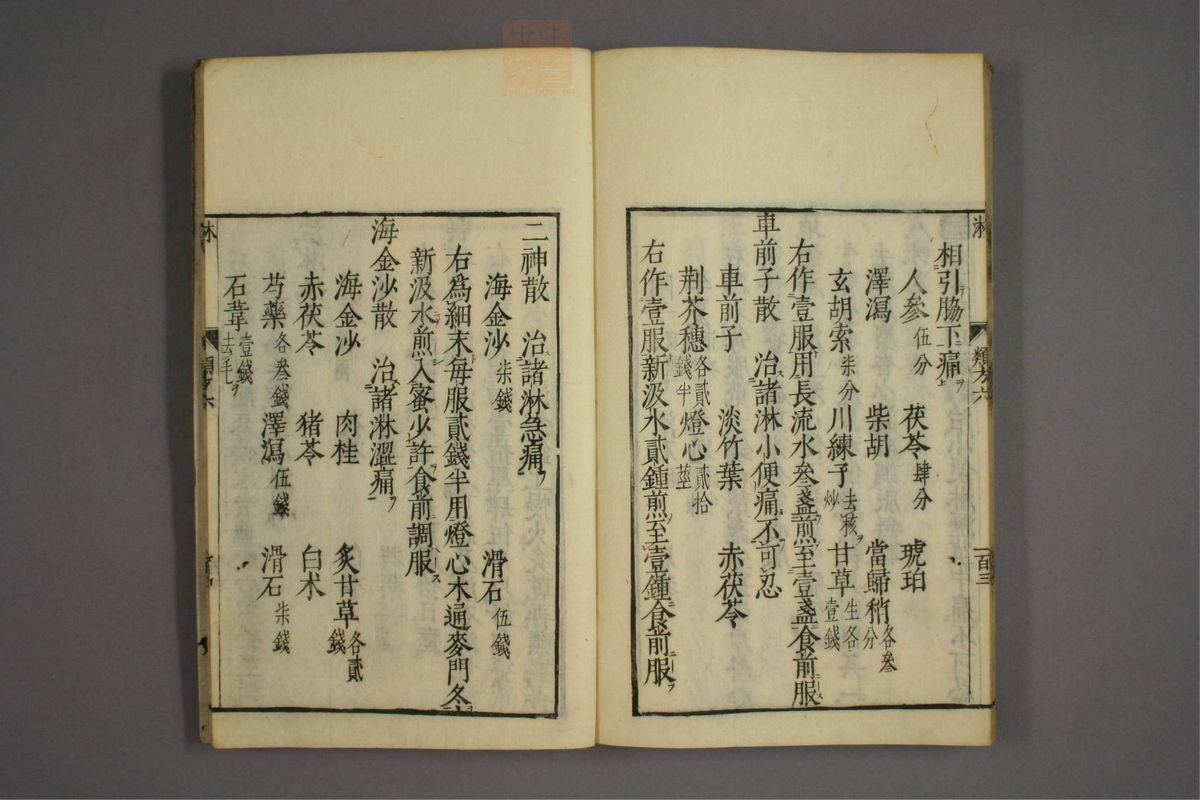 淋 類方六 百三
相引脇下痛
人參伍分 茯苓肆分 琥珀
澤瀉 柴胡 當歸稍各叄分
玄胡索柒分 川練子去核炒 甘草生各壹錢
右作壹服用長流水叄盞煎至壹盞食前服
車前子散 治諸淋小便痛不可忍
車前子 淡竹葉 赤茯苓
荆芥穗各貳錢半 燈心貳拾莖
右作壹服新汲水貳鍾煎至壹鍾食前服
二神散 治諸淋急痛
海金沙柒錢 滑石伍錢
右爲細末每服貳錢半用燈心木通麥門冬
新汲水煎入蜜少許食前調服
海金沙散 治諸淋澀痛
海金沙 肉桂 炙甘草各貳錢
赤茯苓 猪苓 白朮
芍藥各叄錢 澤瀉伍錢 滑石柒錢
石韋壹錢去毛